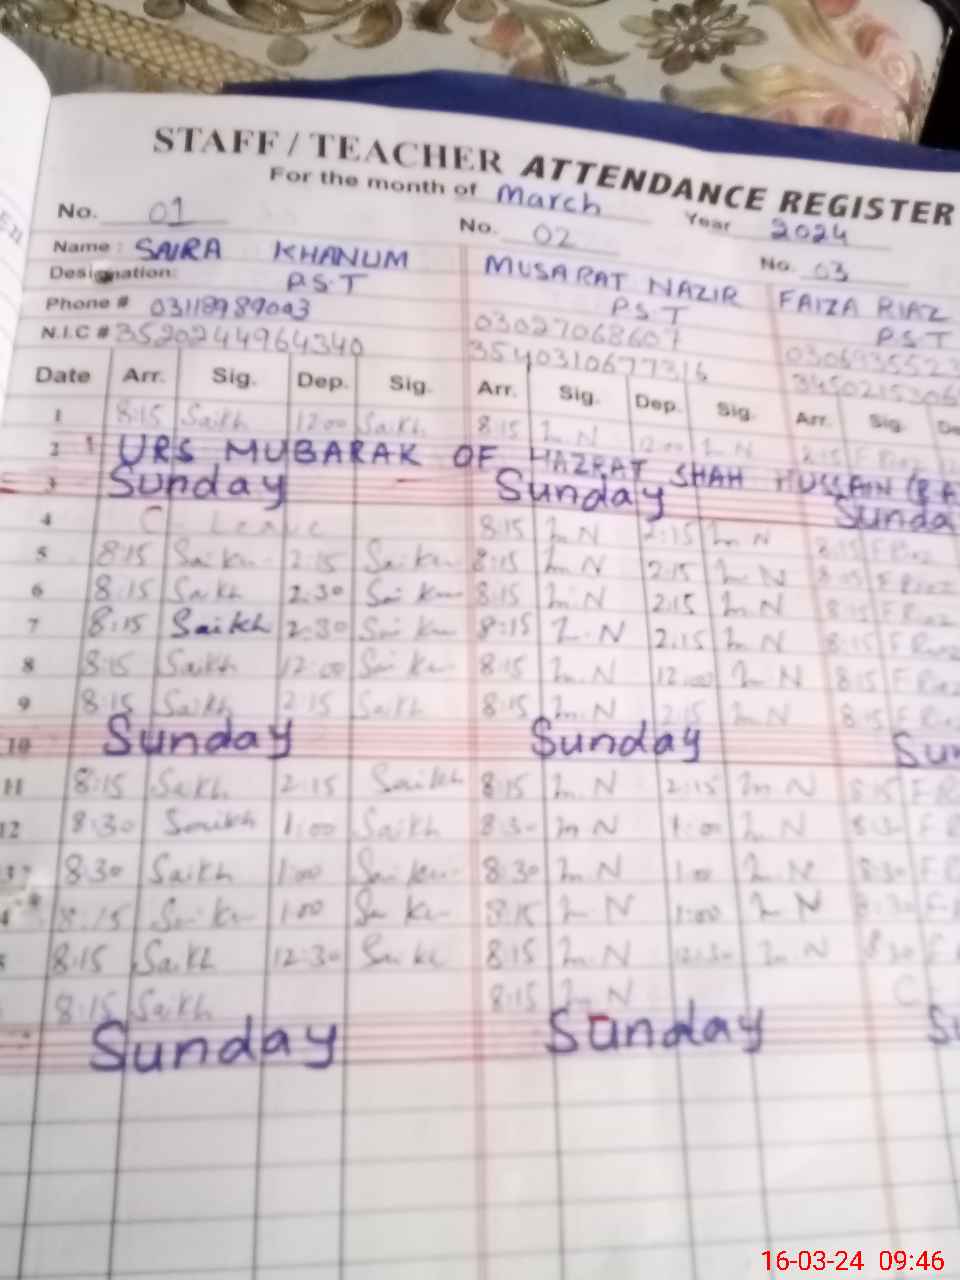 STAFF / TEACHER ATTENDANCE REGISTER
For the month of March Year 2024
No. 01 No. 02 No. 03
Name : SAIRA KHANUM MUSARAT NAZIR FAIZA RIAZ
Designation: P.S.T P.S.T P.S.T
Phone # 03118989003 03027068607 0306935523
N.I.C # 3520244964340 3540310677316
Date Arr. Sig. Dep. Sig. Arr. Sig. Dep. Sig. Arr. Sig.
1 8:15 Saikh 12:00 Saikh 8:15 M.N 12:00 M.N 8:15 F Riaz
2 URS MUBARAK OF HAZRAT SHAH HUSSAIN
3 Sunday Sunday Sunda
4 C. Leave 8:15 M.N 2:15 M.N 8:15 F Riaz
5 8:15 Saikh 2:15 Saikh 8:15 M.N 2:15 M.N 8:15 F Riaz
6 8:15 Saikh 2:30 Saikh 8:15 M.N 2:15 M.N 8:15 F Riaz
7 8:15 Saikh 2:30 Saikh 8:15 M.N 2:15 M.N 8:15 F Riaz
8 8:15 Saikh 12:00 Saikh 8:15 M.N 12:00 M.N 8:15 F Riaz
9 8:15 Saikh 2:15 Saikh 8:15 M.N 2:15 M.N 8:15 F Riaz
10 Sunday Sunday Sun
11 8:15 Saikh 2:15 Saikh 8:15 M.N 2:15 M.N 8:15 F R
12 8:30 Saikh 1:00 Saikh 8:30 M.N 1:00 M.N 8:30 F R
8:30 Saikh 1:00 Saikh 8:30 M.N 1:00 M.N 8:30 F
8:15 Saikh 1:00 Saikh 8:15 M.N 1:00 M.N 8:30 F
8:15 Saikh 12:30 Saikh 8:15 M.N 12:30 M.N 8:30 F
8:15 Saikh 8:15 M.N C
Sunday Sunday Su
16-03-24 09:46